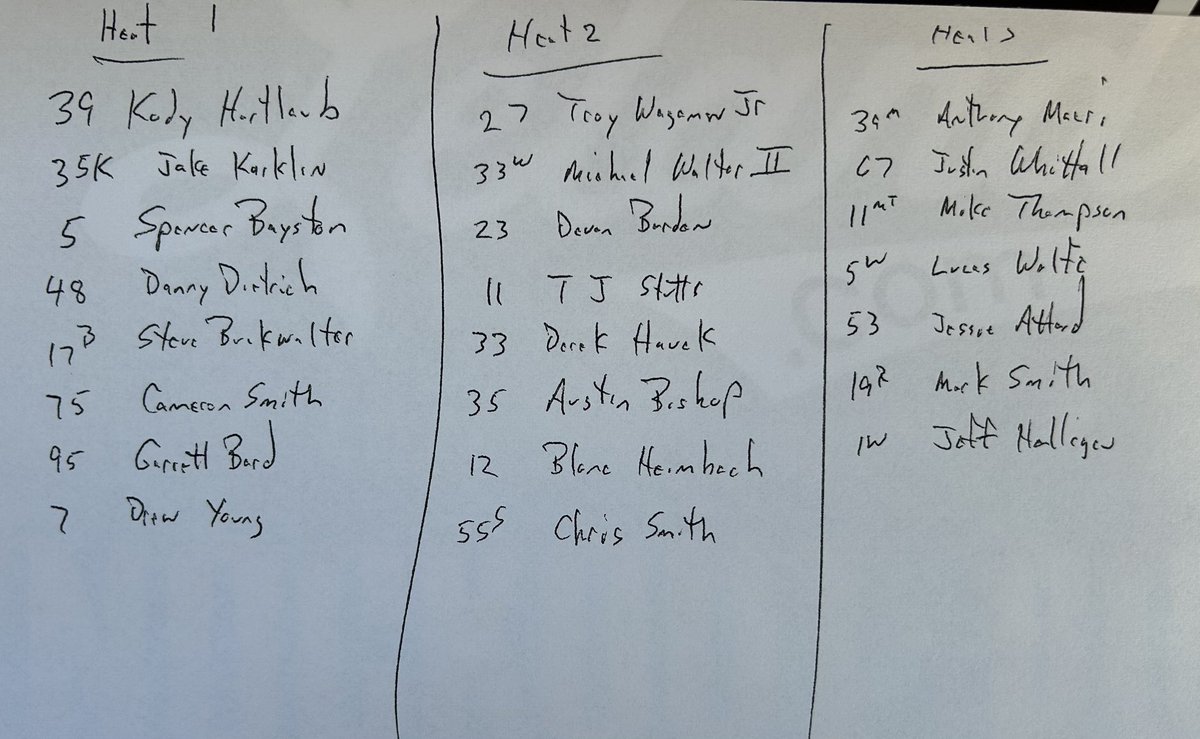 Heat 1
39 Kody Hartlaub
35K Jake Karklin
5 Spencer Bayston
48 Danny Dietrich
17B Steve Buckwalter
75 Cameron Smith
95 Garrett Bard
7 Drew Young
Heat 2
27 Troy Wagaman Jr
33W Michael Walter II
23 Devon Borden
11 T J Stutts
33 Derek Hauck
35 Austin Bishop
12 Blane Heimbach
55S Chris Smith
Heat 3
39M Anthony Macri
67 Justin Whittall
11MT Mike Thompson
5W Lucas Wolfe
53 Jessie Attard
19R Mark Smith
1W Jeff Halligan
.com